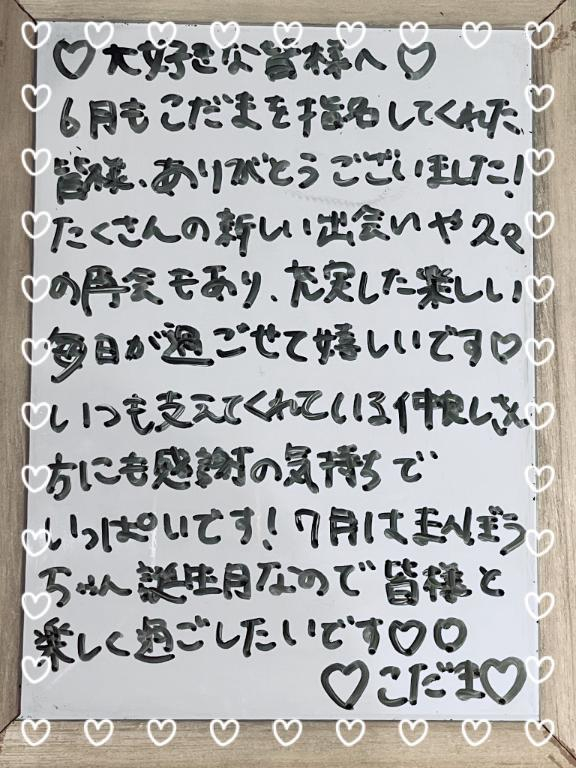 ♡大好きな皆様へ♡
6月もこだまを指名してくれた
皆様、ありがとうございました!
たくさんの新しい出会いや久々
の再会もあり、充実した楽しい
毎日が過ごせて嬉しいです♡
いつも支えてくれている仲良しさん
方にも感謝の気持ちで
いっぱいです!7月はまんぼう
ちゃん誕生月なので皆様と
楽しく過ごしたいです♡♡
♡こだま♡